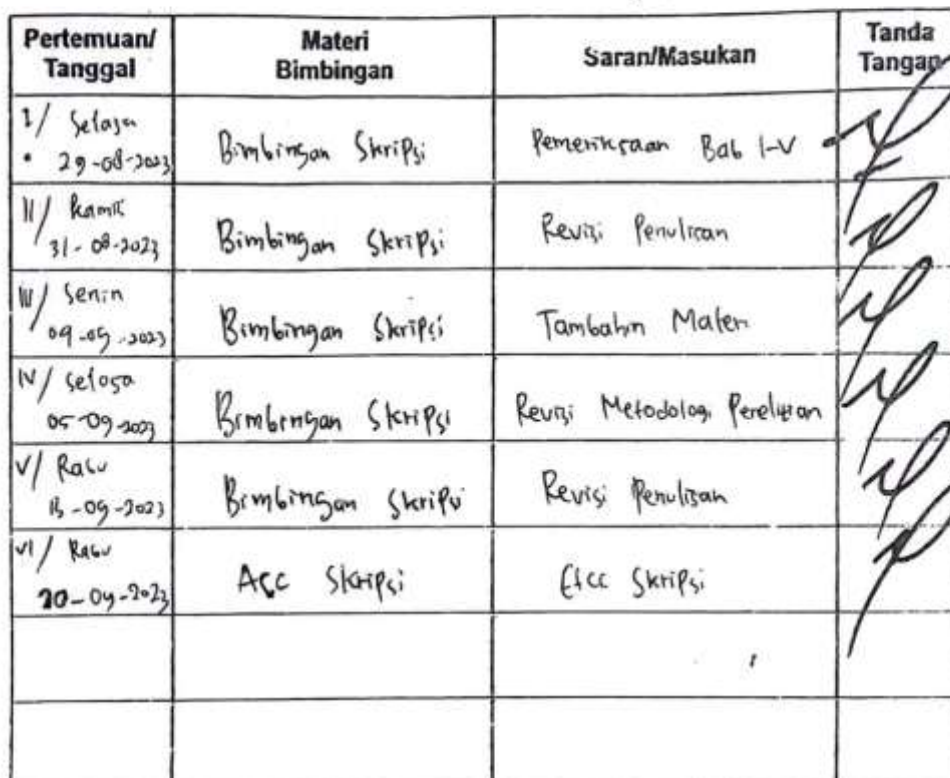 Pertemuan/ Tanggal
Materi Bimbingan
Saran/Masukan
Tanda Tangan
I/ Selasa
29-08-2023
Bimbingan Skripsi
Pemeriksaan Bab I-V
II/ Kamis
31-08-2023
Bimbingan Skripsi
Revisi Penulisan
III/ Senin
04-09-2023
Bimbingan Skripsi
Tambahin Materi
IV/ Selasa
05-09-2023
Bimbingan Skripsi
Revisi Metodologi Penelitian
V/ Rabu
13-09-2023
Bimbingan Skripsi
Revisi Penulisan
VI/ Rabu
20-09-2023
Acc Skripsi
Skripsi